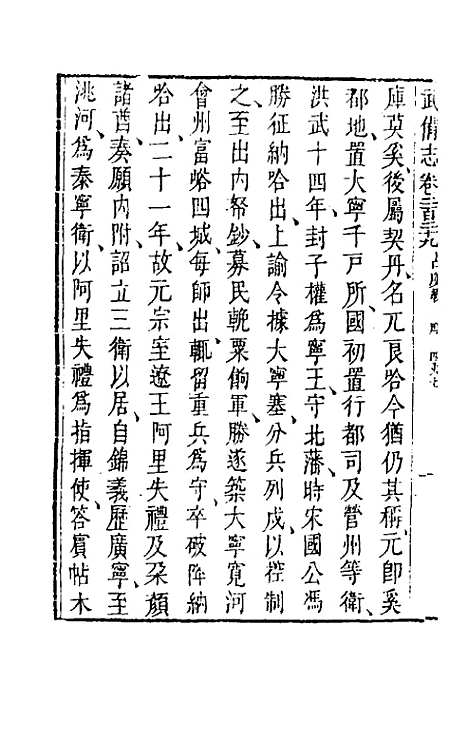 武備志卷二百二十九
庫莫奚後屬契丹名兀良哈今猶仍其稱元卽奚
都地置大寧千戸所國初置行都司及營州等衛
洪武十四年封子權爲寧王守北藩時宋國公馮
勝征納哈出上諭令據大寧塞分兵列戍以控制
之至出内帑鈔募民輓粟餉軍勝遂築大寧寬河
會州富峪四城每師出輒留重兵爲守卒破降納
哈出二十一年故元宗室遼王阿里失禮及朶顔
諸酋奏願内附詔立三衛以居自錦義歷廣寧至
洮河爲秦寧衛以阿里失禮爲指揮使荅賓帖木